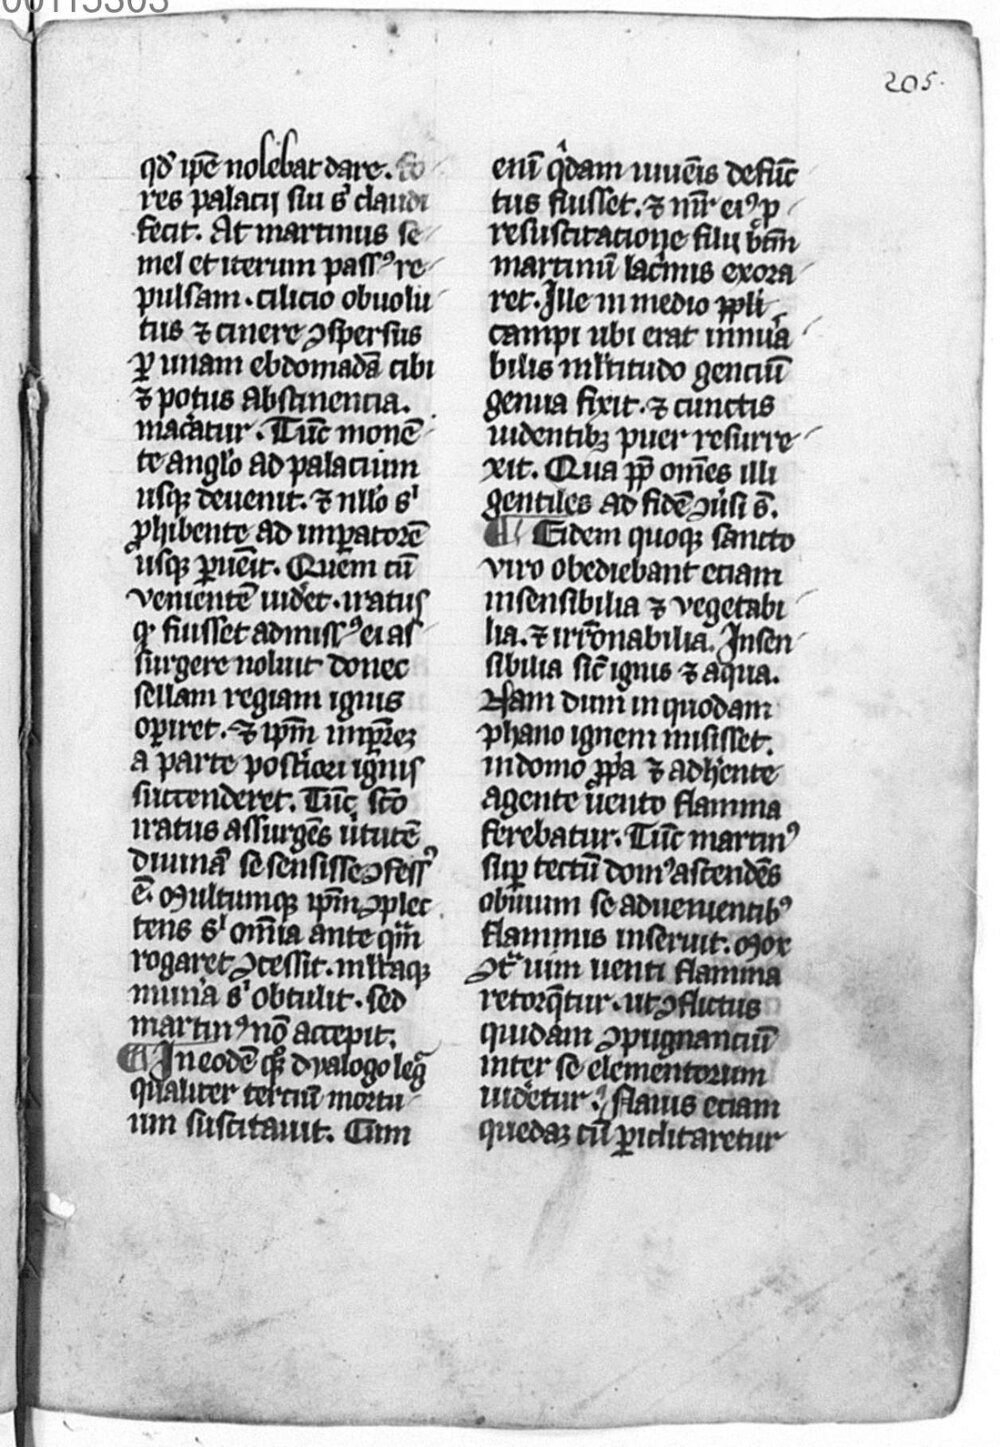 00115303
205.
qď ipē nolebat dare. fo
res palacij sui sͥ claudi
fecit. At martinus se
mel et iterum passꝰ re
pulsam. cilicio obuolu
tus ⁊ cinere ꝯspersus
ꝑ unam ebdomadā cibi
⁊ potus abstinencia.
macatur. Tūc monē
te anglo ad palacium
usqꝫ deuenit. ⁊ nllo sͥ
ꝓhibente ad impatorē
usqꝫ ꝑuēit. Quem cū
venientē uidet. iratus
qꝛ fuisset admissꝰ ei as
surgere noluit donec
sellam regiam ignis
oꝑiret. ⁊ ipm̄ imꝑrēꝫ
a parte postiori ignis
succenderet. Tūc sco
iratus assurgēs ututē
diuinā se sensisse ꝯfessꝰ
ē. Multumqꝫ ipm̄ ꝯplec
tens sͥ omīa ante qm̄
rogaret ꝯcessit. mltaqꝫ
munia sͥ obtulit. sed
martinꝰ nō accepit.
In eodē qꝫ dyalogo leg̃
qualiter terciū mortu
um suscitauit. Cum
eni qͥdam iuuēis defūc
tus fuisset. ⁊ mr̄ eiꝰ ꝓ
resuscitacione filij btm̄
martinū lacimis exora
ret. Ille in medio ppli
campi ubi erat innuā
bilis mltitudo genciū
genua fixit. ⁊ cunctis
uidentibꝫ puer resurre
xit. Qua pp̄ om̄es illi
gentiles ad fidē ꝯuͥsi s̄.
Eidem quoqꝫ sancto
viro obediebant eciam
insensibilia ⁊ vegetabi
lia. ⁊ irrōnabilia. Insen
sibilia sic̄ ignis ⁊ aqua.
Nam dum in quodam
phano ignem misisset.
in domo ppͥa ⁊ adhͥente
agente uento flamma
ferebatur. Tūc martinꝰ
suꝑ tectū domꝰ ascendēs
obuium se aduenientibꝰ
flammis inseruit. Mox
ꝯtͣ uim uenti flamma
retorq̄tur. ut ꝯflictus
quidam ꝯpugnanciū
inter se elementorum
uidetur. Nauis eciam
quedaꝫ cū ꝑiclitaretur